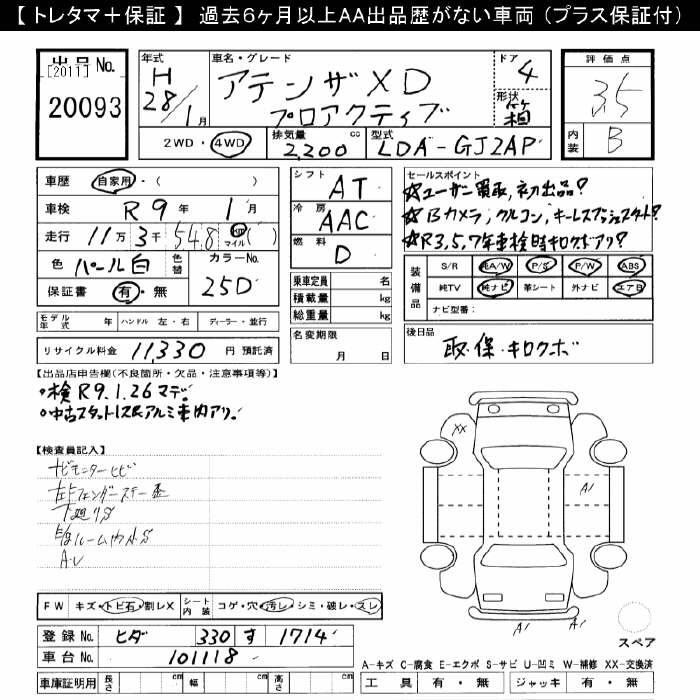 【 トレタマ＋保証 】 過去6ヶ月以上AA出品歴がない車両（プラス保証付）
出品No.
[2011]
20093
年式
H
28/1月
車名・グレード
アテンザXD
プロアクティブ
ドア
4
形状
箱
評価点
3.5
内装
B
2WD・4WD
排気量
2,200 cc
型式
LDA-GJ2AP
車歴 自家用・( )
車検 R9年 1月
走行 11万3千548 Km マイル ( )
色 パール白 色替
カラーNo.
25D
保証書 有・無
モデル年式 年 ハンドル 左・右 ディーラー・並行
リサイクル料金 11,330 円 預託済
シフト AT
冷房 AAC
燃料 D
乗車定員 名
積載量 kg
総重量 kg
名変期限
月 日
セールスポイント
☆ユーザー買取,初出品?
☆Bカメラ,クルコン,キーレスプッシュスタート?
☆R3,5,7年車検時キロクボアリ?
装備品
S/R 純A/W P/S P/W ABS
純TV 純ナビ 革シート 外ナビ エアB
ナビ型番:
後日品
取・保・キロクボ
【出品店申告欄(不良箇所・欠品・注意事項等)】
・検R9.1.26マデ。
・中古スタットレス&アルミ車内アリ。
【検査員記入】
ナビモニターヒビ
下廻りS
A.U
XX
A1
A1
A1
FW キズ・トビ石・割レX
シート内装 コゲ・穴・汚レ・シミ・破レ・スレ
登録No. ヒダ 330 す 1714
車台No. 101118
車庫証明用 長さ cm 幅 cm 高さ cm
スペア
A-キズ C-腐食 E-エクボ S-サビ U-凹ミ W-補修 XX-交換済
工具 有・無 ジャッキ 有・無